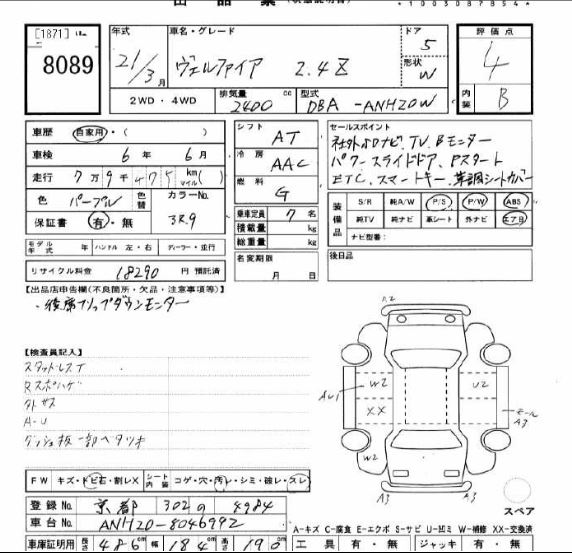 *1003087854*
[1871]
8089
年式
21/3月
車名・グレード
ヴェルファイア 2.4Z
ドア
5
形状
W
評価点
4
内装
B
2WD・4WD
排気量
2400 cc
型式
DBA-ANH20W
車歴 自家用・( )
車検 6年 6月
走行 7万9千475 km マイル( )
色 パープル 色替
カラーNo. 3R9
保証書 有・無
モデル年式 年 ハンドル 左・右 ディーラー・並行
リサイクル料金 18290 円 預託済
シフト AT
冷房 AAC
燃料 G
乗車定員 7 名
積載量 kg
総重量 kg
名変期限
月 日
セールスポイント
社外HDDナビ、TV、Bモニター
パワースライドドア、Pスタート
ETC、スマートキー、革調シートカバー
装備品
S/R 純A/W P/S P/W ABS
純TV 純ナビ 革シート 外ナビ エアB
ナビ型番:
後日品
【出品店申告欄(不良箇所・欠品・注意事項等)】
・後席フリップダウンモニター
【検査員記入】
スタッドレスT
Rスポハゲ
外キズ
A-U
ダッシュ板一部ベタツキ
A2
AU1
W2
XX
W2
U2
モール
A3
A3
A3
スペア
FW キズ・トビ石・割レX
シート内装 コゲ・穴・汚レ・シミ・破レ・スレ
登録No. 京都 302 の 4984
車台No. ANH20-8046992
車庫証明用 長さ 486 幅 184 高さ 190
A-キズ C-腐食 E-エクボ S-サビ U-凹ミ W-補修 XX-交換済
工具 有・無 ジャッキ 有・無